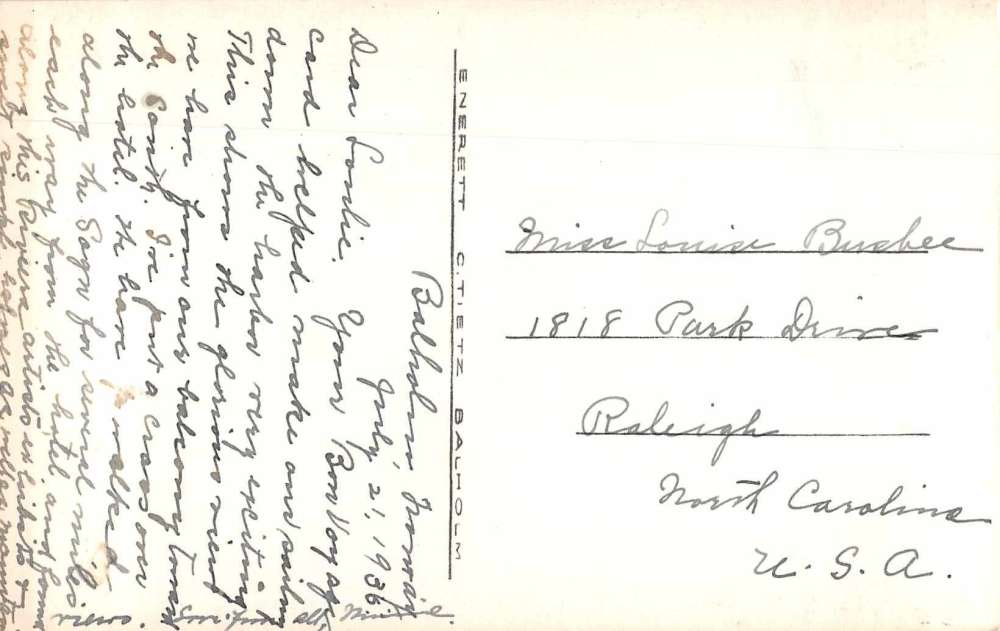 Balholm, Norway
July, 21, 1936
Dear Louise. Your Bon Voyage
card helped make our sailing
down the harbor very exciting
This shows the glorious view
we have from our balcony toward
the South. I've put a cross over
the hotel. We have walked
along the Sogn for several miles
each way from the hotel and
along this
views. Love from all,
ENERETT C. TIETZ BALHOLM
Miss Louise Busbee
1818 Park Drive
Raleigh
North Carolina
U. S. A.